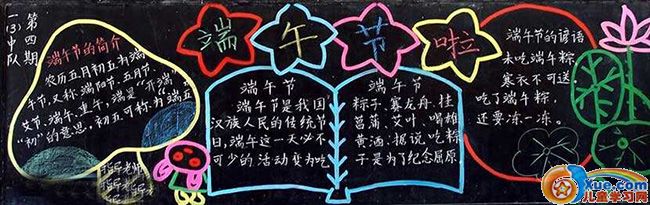 第四期
一(3)中队
端午节啦
端午节的简介
农历五月初五为端
午节又称端阳节、五月节、
艾节、端午、重午,端是"开端"、
"初"的意思,初五可称为端五
指导老师
端午节
端午节是我国
汉族人民的传统节
日,端午这一天必不
可少的活动变为吃
端午节
粽子、赛龙舟、挂
菖蒲、艾叶、喝雄
黄酒。据说吃粽
子是为了纪念屈原
端午节的谚语
未吃端午粽
寒衣不可送
吃了端午粽,
还要冻一冻。
Xue.com
儿童学习网